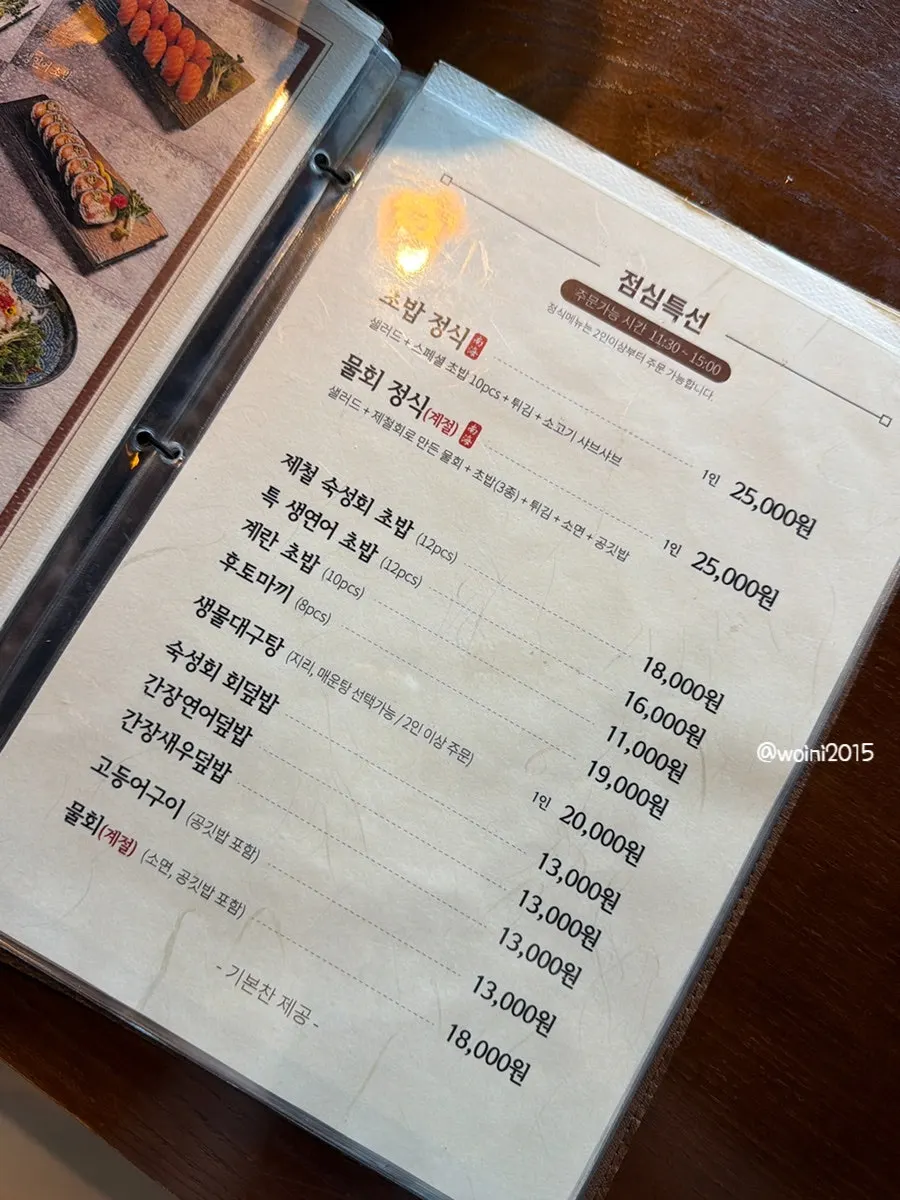 점심특선
주문가능 시간 11:30 ~ 15:00
정식메뉴는 2인이상부터 주문 가능합니다.
초밥 정식 南海 1인 25,000원
샐러드 + 스페셜 초밥 10pcs + 튀김 + 소고기 샤브샤브
물회 정식(계절) 南海 1인 25,000원
샐러드 + 제철회로 만든 물회 + 초밥(3종) + 튀김 + 소면 + 공깃밥
제철 숙성회 초밥 (12pcs) 18,000원
특 생연어 초밥 (12pcs) 16,000원
계란 초밥 (10pcs) 11,000원
후토마끼 (8pcs) 19,000원
생물대구탕 (지리, 매운탕 선택가능 / 2인 이상 주문) 1인 20,000원
숙성회 회덮밥 13,000원
간장연어덮밥 13,000원
간장새우덮밥 13,000원
고등어구이 (공깃밥 포함) 13,000원
물회(계절) (소면, 공깃밥 포함) 18,000원
- 기본찬 제공 -
@woini2015